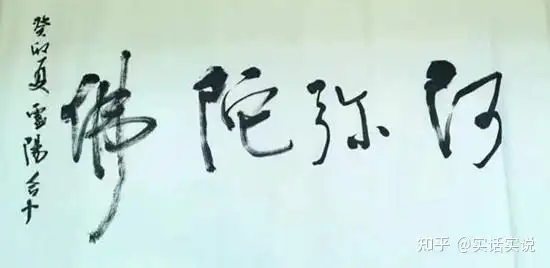 阿弥陀佛
癸卯夏雲陽合十
知乎 @实话实说